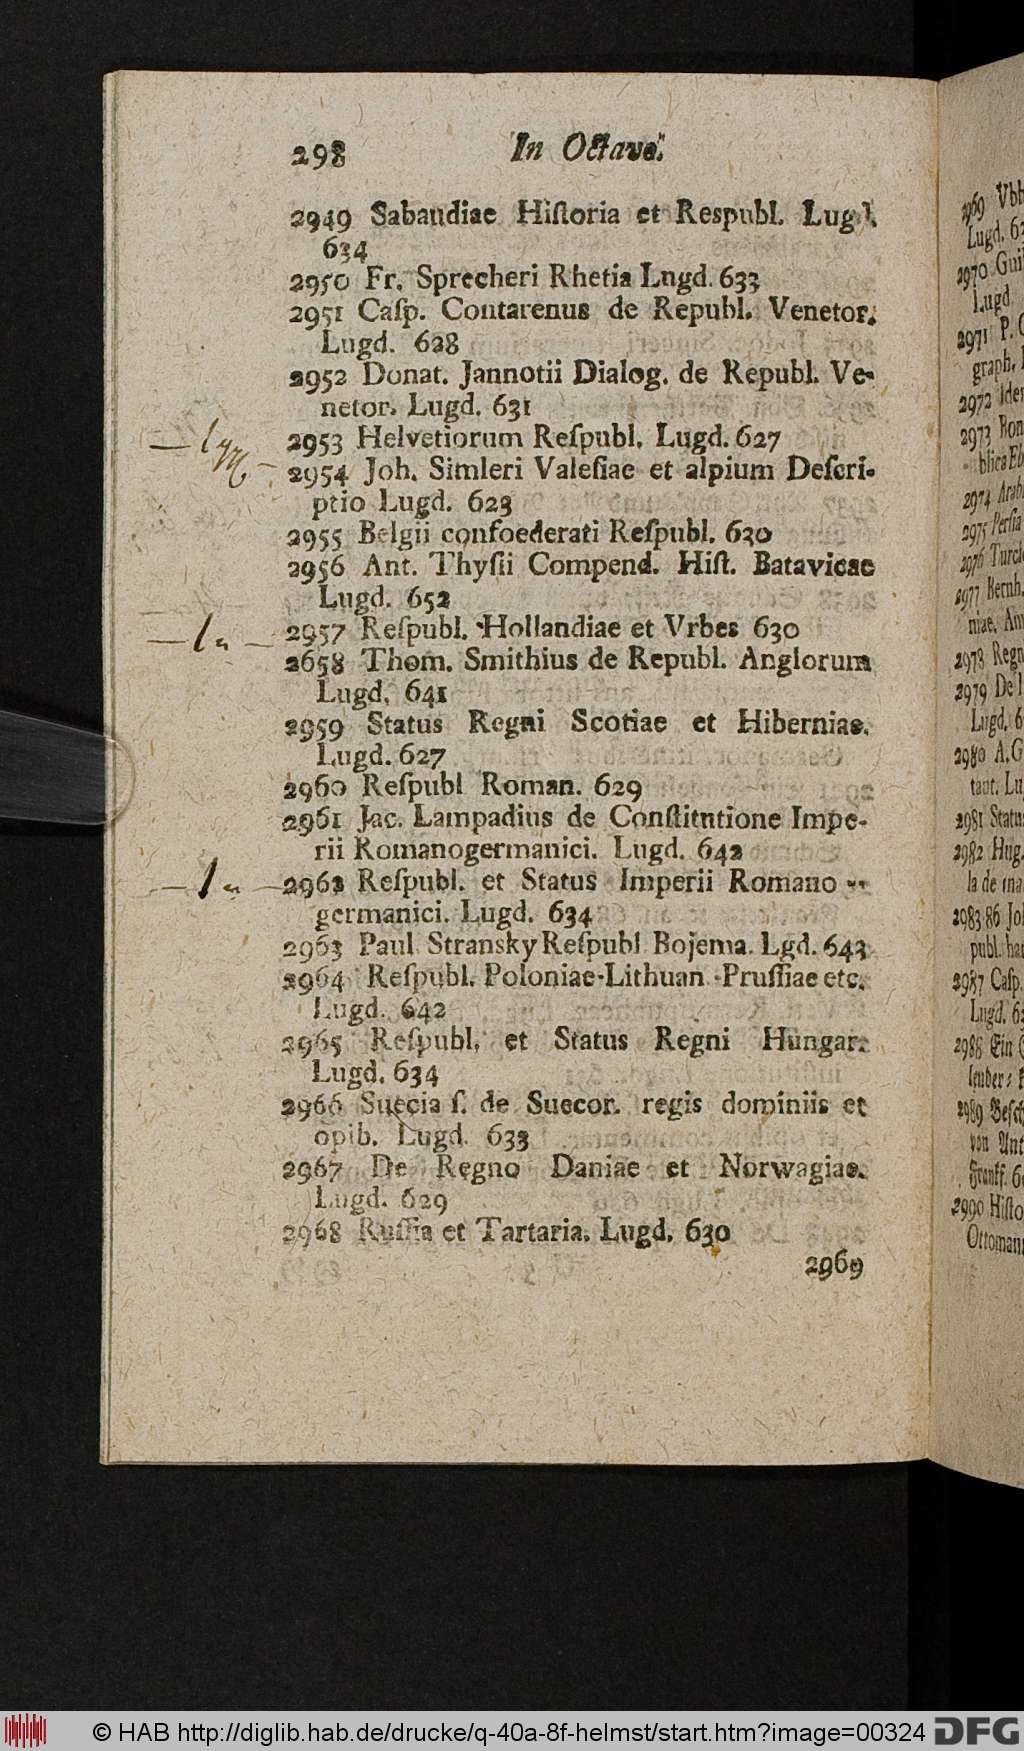 298 In Octavo.
2949 Sabaudiae Hiſtoria et Respubl. Lugd.
634
2950 Fr. Sprecheri Rhetia Lngd. 633
2951 Caſp. Contarenus de Republ. Venetor.
Lugd. 628
2952 Donat. Jannotii Dialog. de Republ. Ve-
netor. Lugd. 631
2953 Helvetiorum Reſpubl. Lugd. 627
2954 Joh. Simleri Valeſiae et alpium Deſcri-
ptio Lugd. 623
2955 Belgii confoederati Reſpubl. 630
2956 Ant. Thyſii Compend. Hiſt. Batavicae
Lugd. 652
2957 Reſpubl. Hollandiae et Vrbes 630
2658 Thom. Smithius de Republ. Anglorum
Lugd. 641
2959 Status Regni Scotiae et Hiberniae.
Lugd. 627
2960 Reſpubl Roman. 629
2961 Jac. Lampadius de Conſtitntione Impe-
rii Romanogermanici. Lugd. 642
2962 Reſpubl. et Status Imperii Romano -
germanici. Lugd. 634
2963 Paul Stransky Reſpubl Bojema. Lgd. 643
2964 Reſpubl. Poloniae-Lithuan -Pruſſiae etc.
Lugd. 642
2965 Reſpubl. et Status Regni Hungar.
Lugd. 634
2966 Suecia ſ. de Suecor. regis dominiis et
opib. Lugd. 633
2967 De Regno Daniae et Norwagiae.
Lugd. 629
2968 Ruſſia et Tartaria. Lugd. 630
2969
2969 Vbb
Lugd. 63
2970 Gui
Lugd
2971 P.
graph.
2972 Ider
2973 Bon
blica
2974 Arab
2975 Perſia
2976 Turci
2977 Bernh.
niae.
2978 Regn
2979 De
Lugd. 6
2980 A. G
tant. Lu
2981 Statu
2982 Hug.
la de
2983.86 Jo
publ.
2987 Caſp.
Lugd. 6
2988 Ein
2989 Beſch
von Ant
Frankf. 6
2990 Hiſto
Ottoman
© HAB http://diglib.hab.de/drucke/q-40a-8f-helmst/start.htm?image=00324 DFG